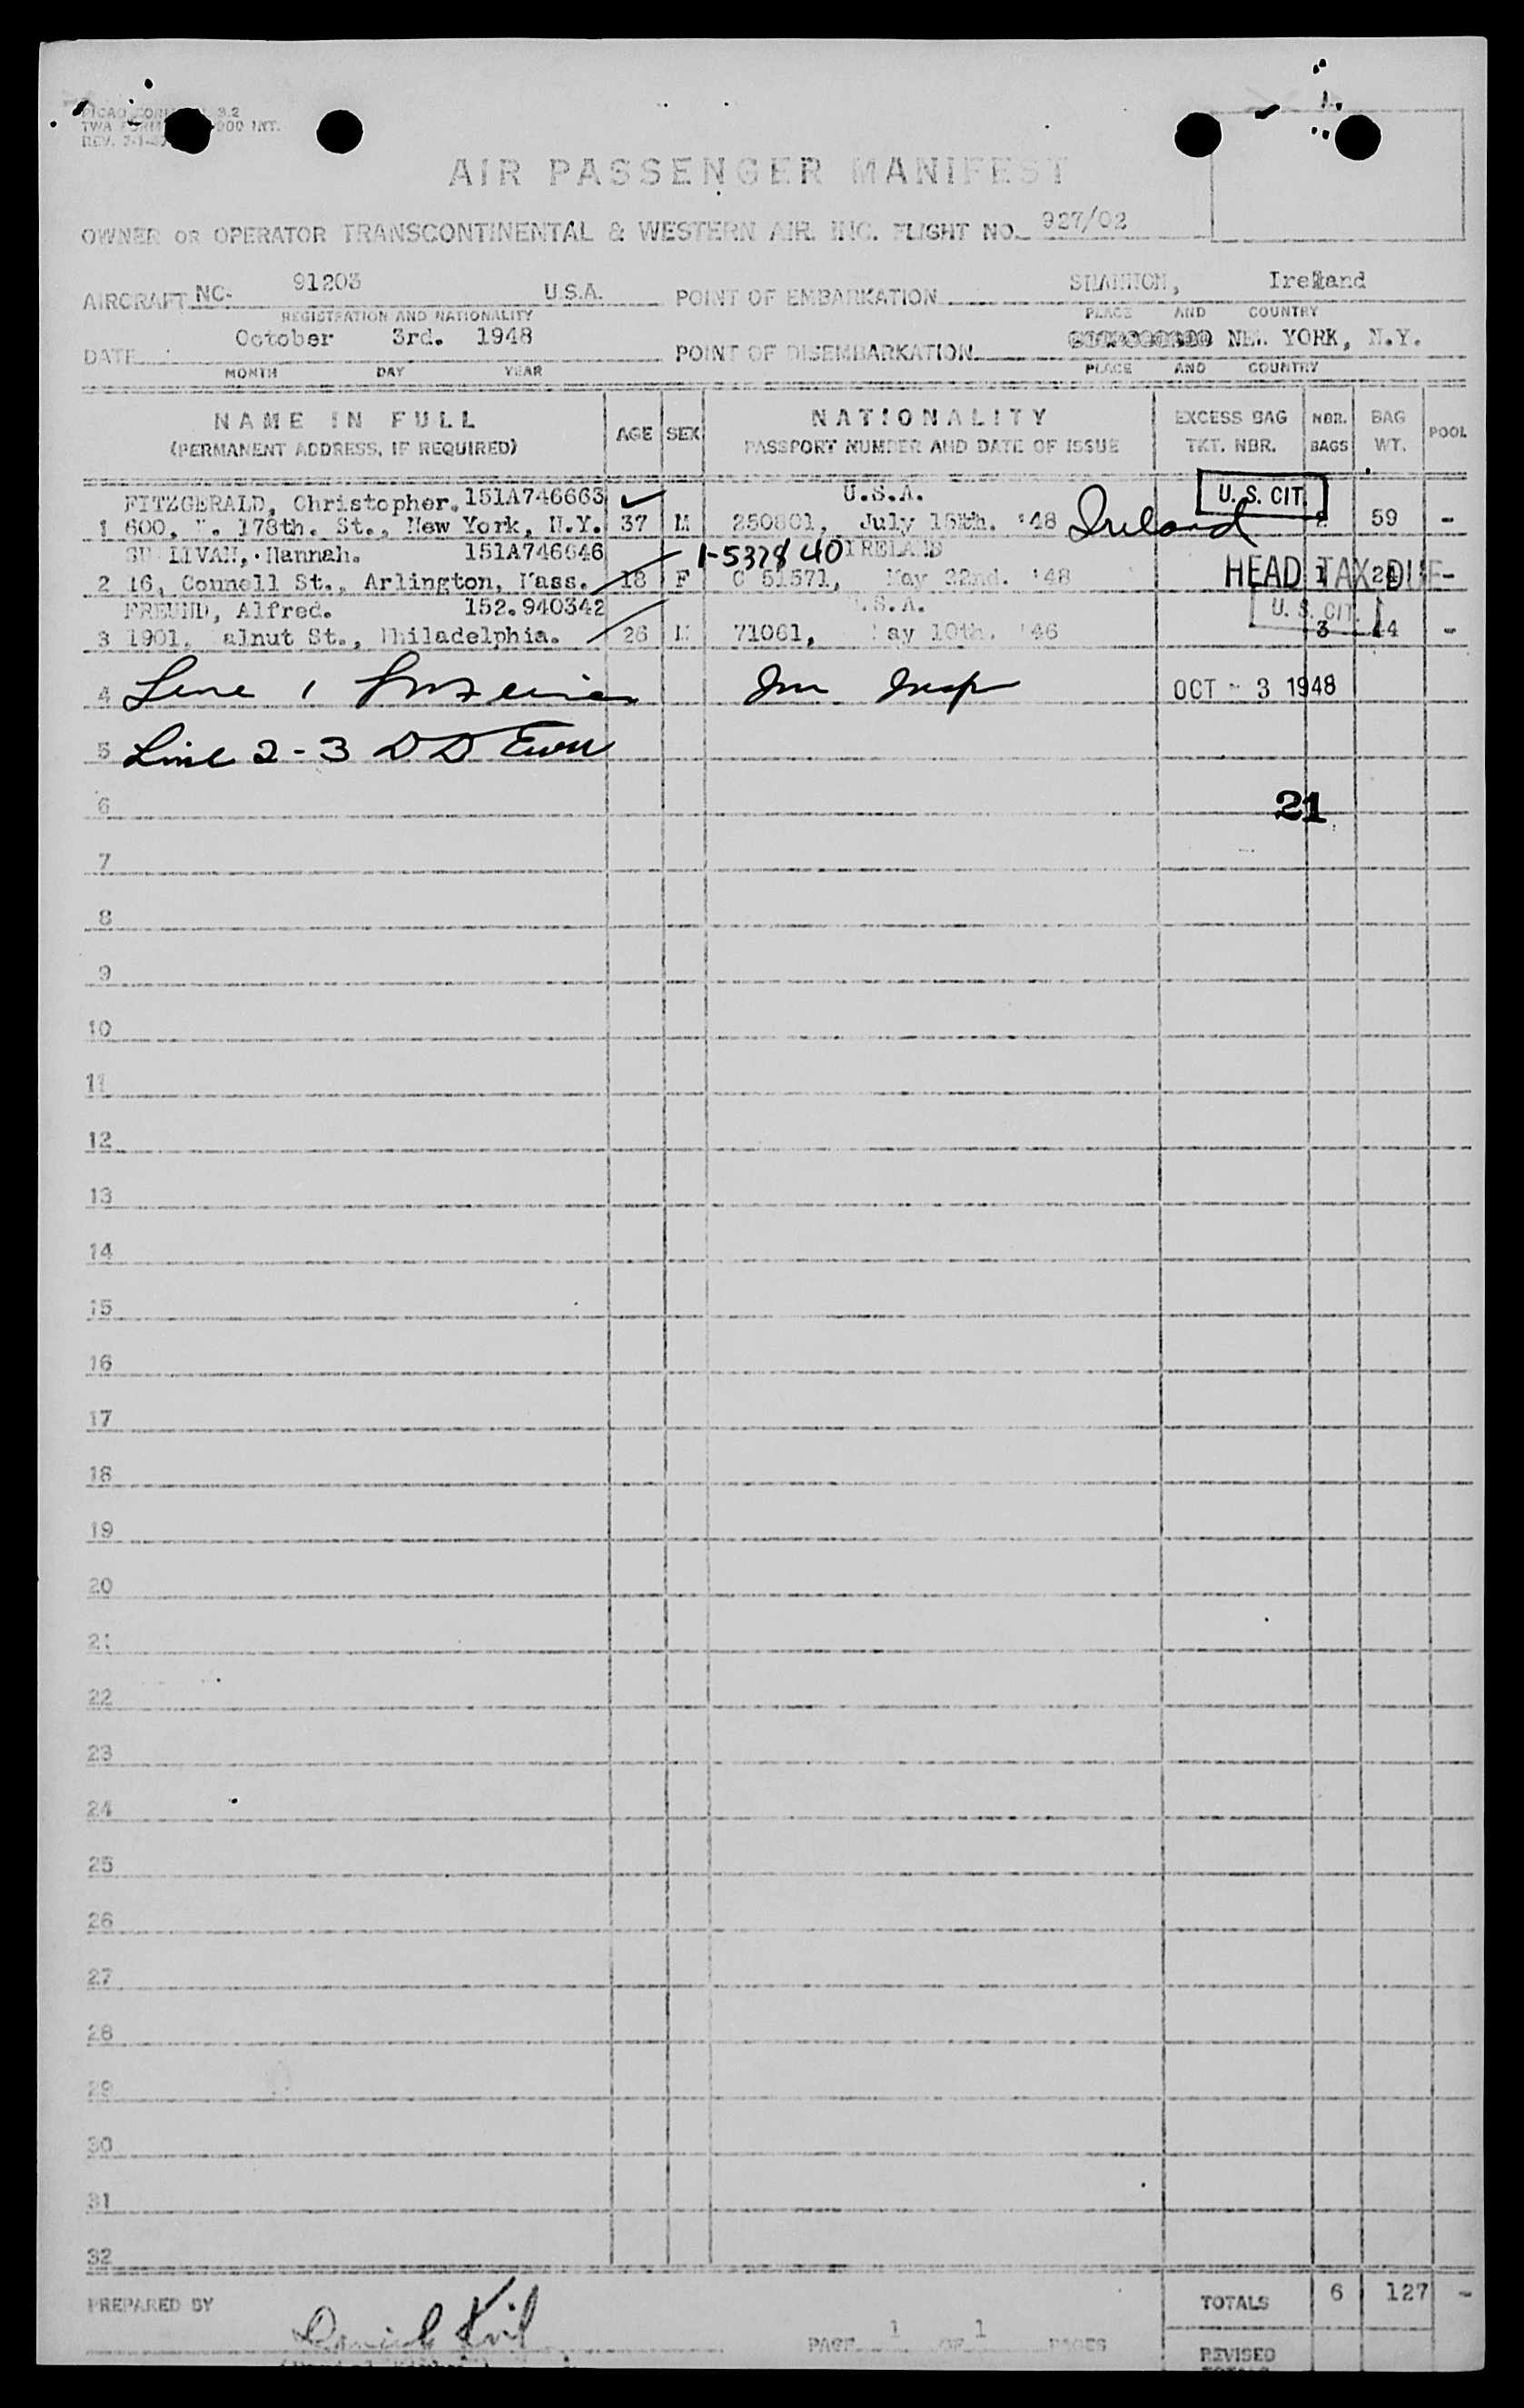 3.2
TWA FORM 000 INT.
REV.
AIR PASSENGER MANIFEST
OWNER OR OPERATOR TRANSCONTINENTAL & WESTERN AIR. INC. FLIGHT NO. 927/02
AIRCRAFT NC- 91203 U.S.A. POINT OF EMBARKATION SHANNON, Ireland
REGISTRATION AND NATIONALITY PLACE AND COUNTRY
DATE October 3rd. 1948 POINT OF DISEMBARKATION NEW YORK, N.Y.
MONTH DAY YEAR PLACE AND COUNTRY
NAME IN FULL AGE SEX NATIONALITY EXCESS BAG NBR. BAG POOL
(PERMANENT ADDRESS, IF REQUIRED) PASSPORT NUMBER AND DATE OF ISSUE TKT. NBR. BAGS WT.
FITZGERALD, Christopher. 151A746663 U.S.A. U.S. CIT
1 600, W. 178th. St., New York, N.Y. 37 M 250801, July 15th. '48 Ireland 2 59 -
SULLIVAN, Hannah. 151A746646 1-5378 40 IRELAND
2 16, Connell St., Arlington, Mass. 18 F C 51571, May 22nd. '48 HEAD TAX DUE 1 24 -
FREUND, Alfred. 152.940342 U.S.A. U.S. CIT.
3 1901, Walnut St., Philadelphia. 26 M 71061, May 10th. '46 3 44 -
4 Line 1 Imm Insp OCT - 3 1948
5 Line 2-3 DD
6 21
7
8
9
10
11
12
13
14
15
16
17
18
19
20
21
22
23
24
25
26
27
28
29
30
31
32
PREPARED BY TOTALS 6 127 -
PAGE 1 OF 1 PAGES
REVISED
TOTALS